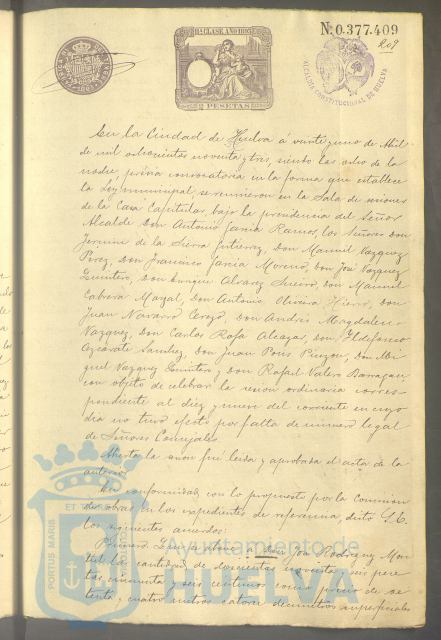 11ª CLASE, AÑO 1893
2 PESETAS
Nº 0.377.409
209
ALCALDIA CONSTITUCIONAL DE HUELVA
En la Ciudad de Huelva á veinte y uno de Abril
de mil ochocientos noventa y tres, siendo las ocho de la
noche, prévia convocatoria en la forma que establece
la Ley municipal se reunieron en la Sala de sesiones
de la Casa Capitular, bajo la presidencia del Señor
Alcalde Don Antonio García Ramos, los Señores Don
Jermin de la Sierra Gutierrez, Don Manuel Vazquez
Perez, Don Francisco García Moreno, Don José Vazquez
Quintero, Don Enrique Alvarez Suero, Don Manuel
Cabrera Mayal, Don Antonio Oliveira Hierro, Don
Juan Navarro Cerezo, Don Andrés Magdaleno
Vazquez, Don Carlos Rofa Alcazar, Don Ildefonso
Azcárate Sanchez, Don Juan Pons Pinzon, Don Mi-
guel Vazquez Quintero y Don Rafael Valero Barragan,
con objeto de celebrar la sesion ordinaria corres-
pondiente al diez y nueve del corriente en cuyo
dia no tuvo efecto por falta de número legal
de Señores Concejales.
Abierta la sesion fué leida y aprobada el acta de la
anterior.
De conformidad con lo propuesto por la Comision
de obras en los expedientes de referencia, dictó S.E.
los siguientes acuerdos:
Primero. á Don José Rodriguez Mon-
tiel la cantidad de doscientas noventa y seis pese-
tas cincuenta y seis céntimos como precio de se-
tenta y cuatro metros catorce decímetros superficiales
PORTUS MARIS
ET TERRAE
Ayuntamiento de
HUELVA